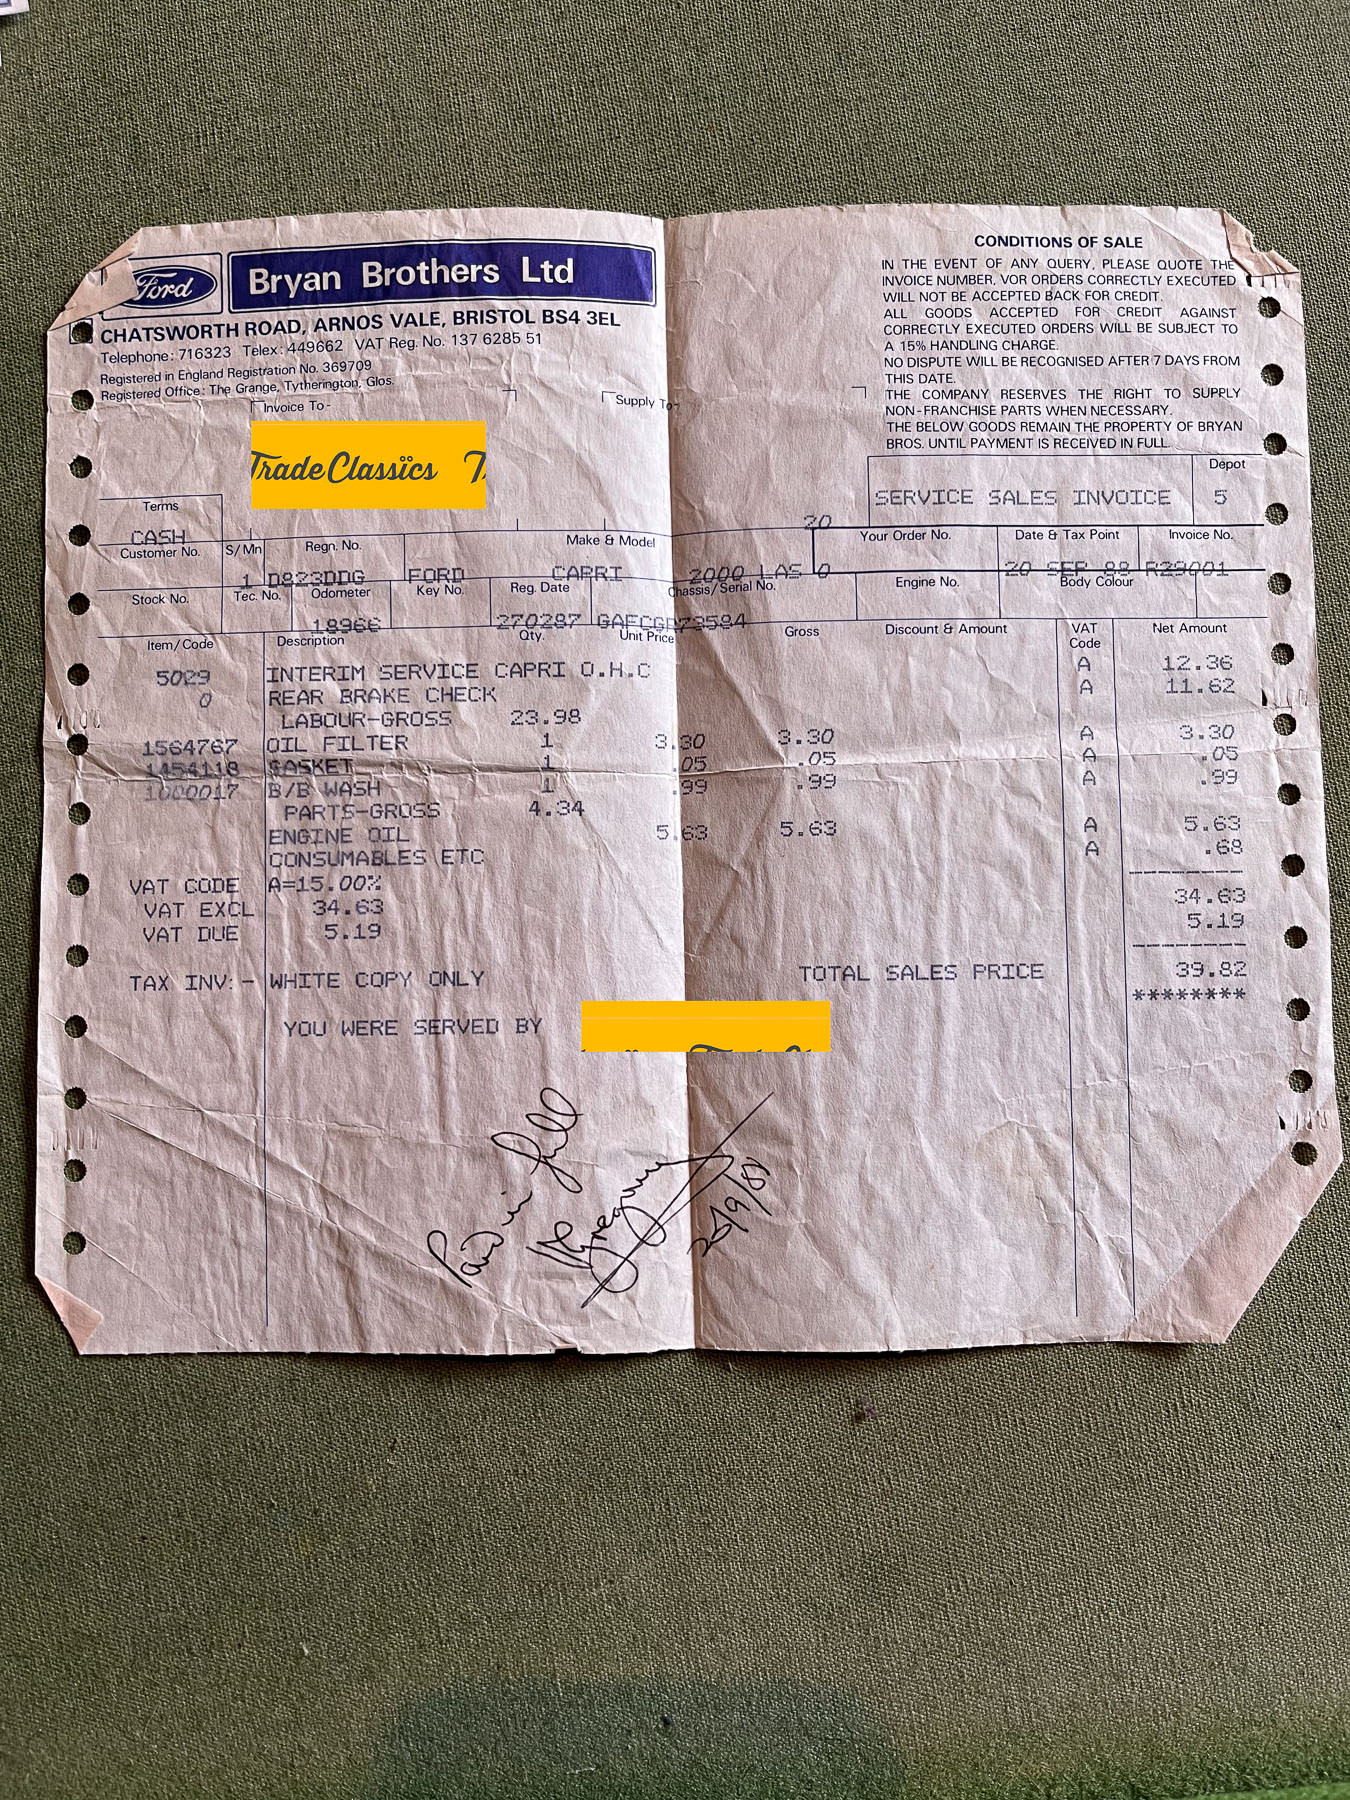 Ford
Bryan Brothers Ltd
CHATSWORTH ROAD, ARNOS VALE, BRISTOL BS4 3EL
Telephone: 716323 Telex: 449662 VAT Reg. No. 137 6285 51
Registered in England Registration No. 369709
Registered Office: The Grange, Tytherington, Glos.
CONDITIONS OF SALE
IN THE EVENT OF ANY QUERY, PLEASE QUOTE THE
INVOICE NUMBER, VOR ORDERS CORRECTLY EXECUTED
WILL NOT BE ACCEPTED BACK FOR CREDIT.
ALL GOODS ACCEPTED FOR CREDIT AGAINST
CORRECTLY EXECUTED ORDERS WILL BE SUBJECT TO
A 15% HANDLING CHARGE.
NO DISPUTE WILL BE RECOGNISED AFTER 7 DAYS FROM
THIS DATE.
THE COMPANY RESERVES THE RIGHT TO SUPPLY
NON-FRANCHISE PARTS WHEN NECESSARY.
THE BELOW GOODS REMAIN THE PROPERTY OF BRYAN
BROS. UNTIL PAYMENT IS RECEIVED IN FULL.
Invoice To- Supply To-
TradeClassics
Depot
SERVICE SALES INVOICE 5
Terms
CASH
20
Customer No. S/Mn Regn. No. Make & Model Your Order No. Date & Tax Point Invoice No.
1 D823DDG FORD CAPRI 2000 LAS 0 20 SEP 88 R29001
Stock No. Tec. No. Odometer Key No. Reg. Date Chassis/Serial No. Engine No. Body Colour
18966 270287 GAECGP73584
Item/Code Description Qty. Unit Price Gross Discount & Amount VAT Code Net Amount
5029 INTERIM SERVICE CAPRI O.H.C A 12.36
0 REAR BRAKE CHECK A 11.62
LABOUR-GROSS 23.98
1564767 OIL FILTER 1 3.30 3.30 A 3.30
1454118 GASKET 1 .05 .05 A .05
1000017 B/B WASH 1 .99 .99 A .99
PARTS-GROSS 4.34
ENGINE OIL 5.63 5.63 A 5.63
CONSUMABLES ETC A .68
VAT CODE A=15.00%
VAT EXCL 34.63 34.63
VAT DUE 5.19 5.19
TAX INV:- WHITE COPY ONLY TOTAL SALES PRICE 39.82
********
YOU WERE SERVED BY
Paid in full